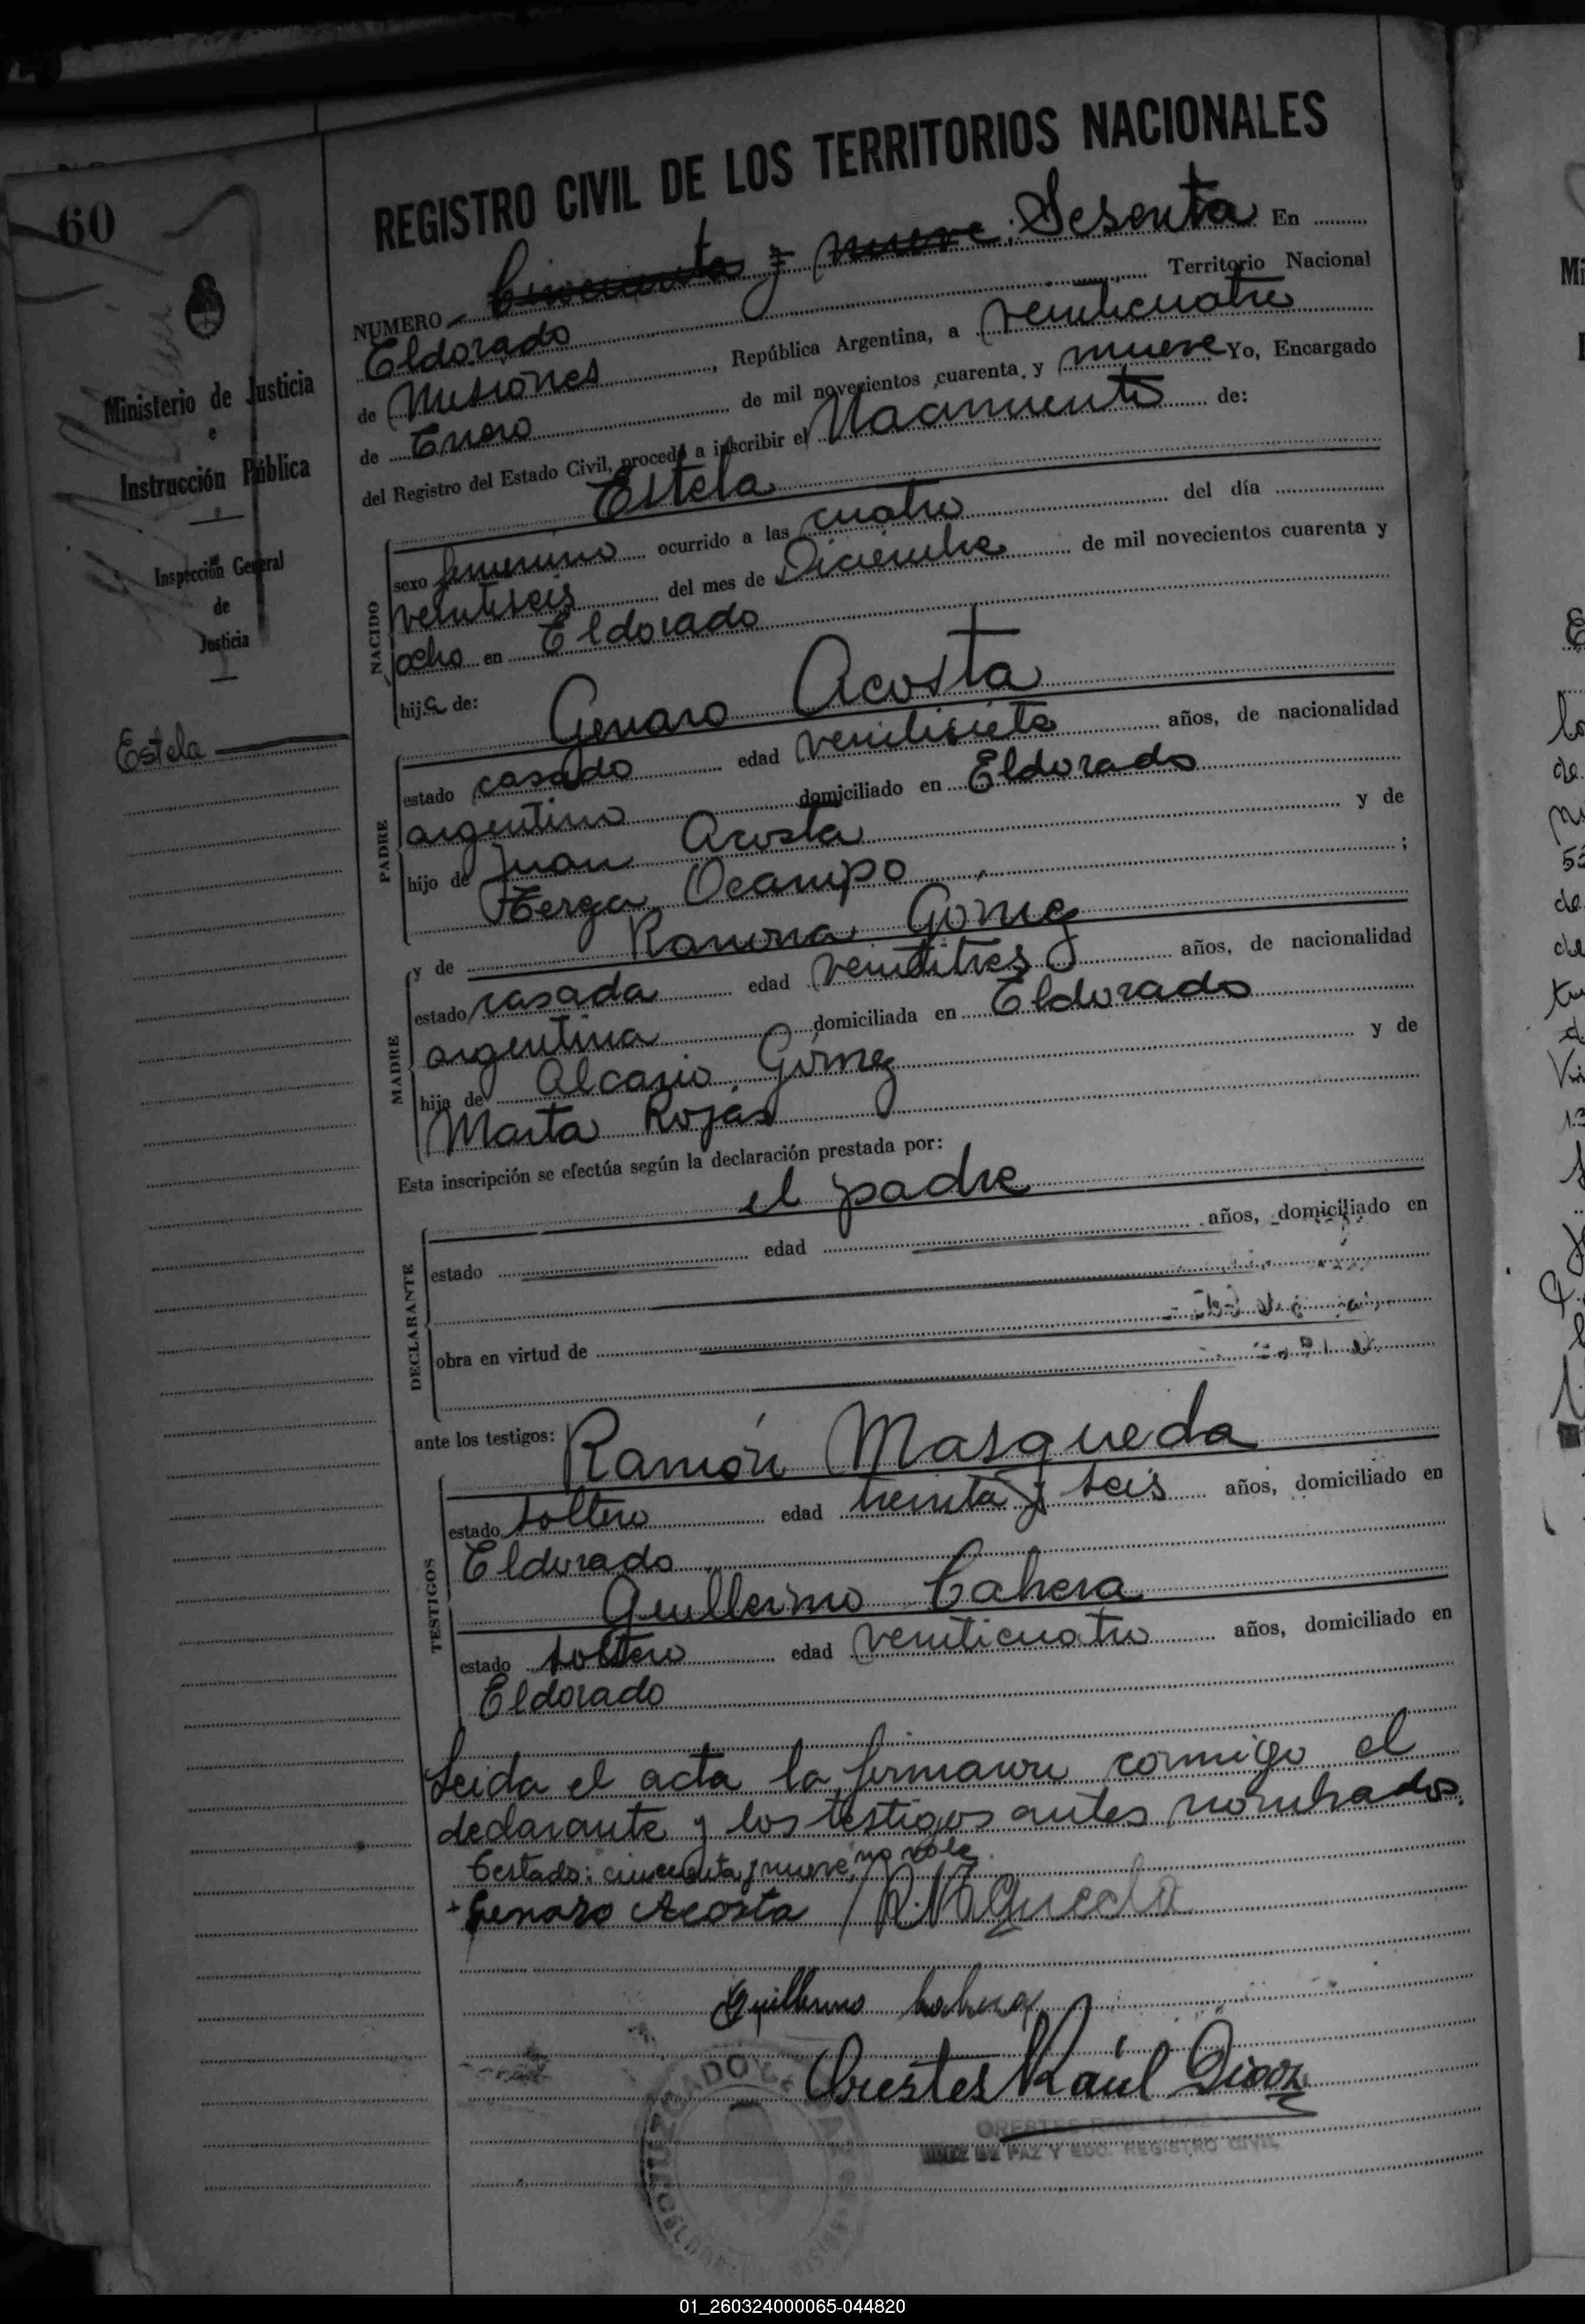 60
Ministerio de Justicia
e
Instrucción Pública
Inspección General
de
Justicia
Estela
REGISTRO CIVIL DE LOS TERRITORIOS NACIONALES
NUMERO Cincuenta y nueve: Sesenta En
Eldorado Territorio Nacional
de Misiones, República Argentina, a veinticuatro
de Enero de mil novecientos cuarenta y nueve Yo, Encargado
del Registro del Estado Civil, procedo a inscribir el Nacimiento de:
Estela
NACIDO
sexo femenino ocurrido a las cuatro del día
veintiseis del mes de Diciembre de mil novecientos cuarenta y
ocho en Eldorado
hija de:
Genaro Acosta
PADRE
estado casado edad veintisiete años, de nacionalidad
argentino domiciliado en Eldorado
hijo de Juan Acosta y de
Ocampo ;
y de Ramona Gomez
MADRE
estado casada edad veintitres años, de nacionalidad
argentina domiciliada en Eldorado
hija de Alcario Gómez y de
Marta Rojas
Esta inscripción se efectúa según la declaración prestada por:
el padre
DECLARANTE
estado edad años, domiciliado en
obra en virtud de
ante los testigos: Ramón Masqueda
TESTIGOS
estado soltero edad treinta y seis años, domiciliado en
Eldorado
Guillermo Cabera
estado soltero edad veinticuatro años, domiciliado en
Eldorado
Leida el acta la firmaron conmigo el
declarante y los testigos antes nombrados.
Testado: cincuenta y nueve, no vale.
Genaro Acosta
Guillermo Cabera
Orestes Raúl Diaz
ORESTES RAUL DIAZ
JUEZ DE PAZ Y EDO. REGISTRO CIVIL
01_260324000065-044820